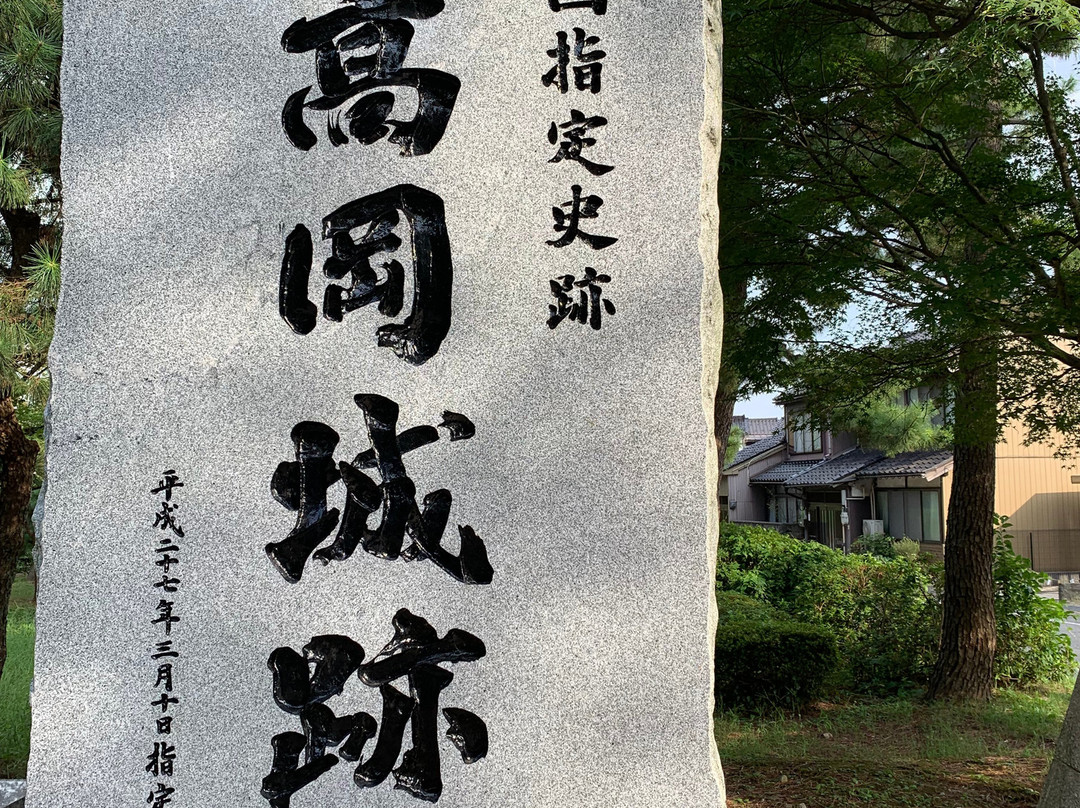 国指定史跡
高岡城跡
平成二十七年三月十日指定